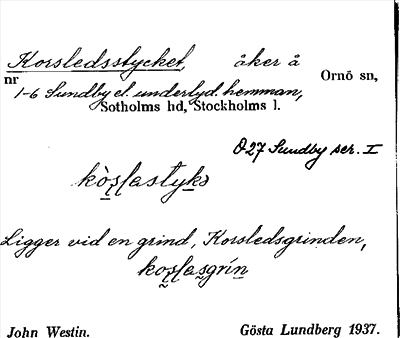 Korsledsstycket, åker å
nr Ornö sn,
1-6 Sundby el. underlyd. hemman,
Sotholms hd, Stockholms l.
Ö27 Sundby ser. I
Ligger vid en grind, Korsledsgrinden,
John Westin. Gösta Lundberg 1937.